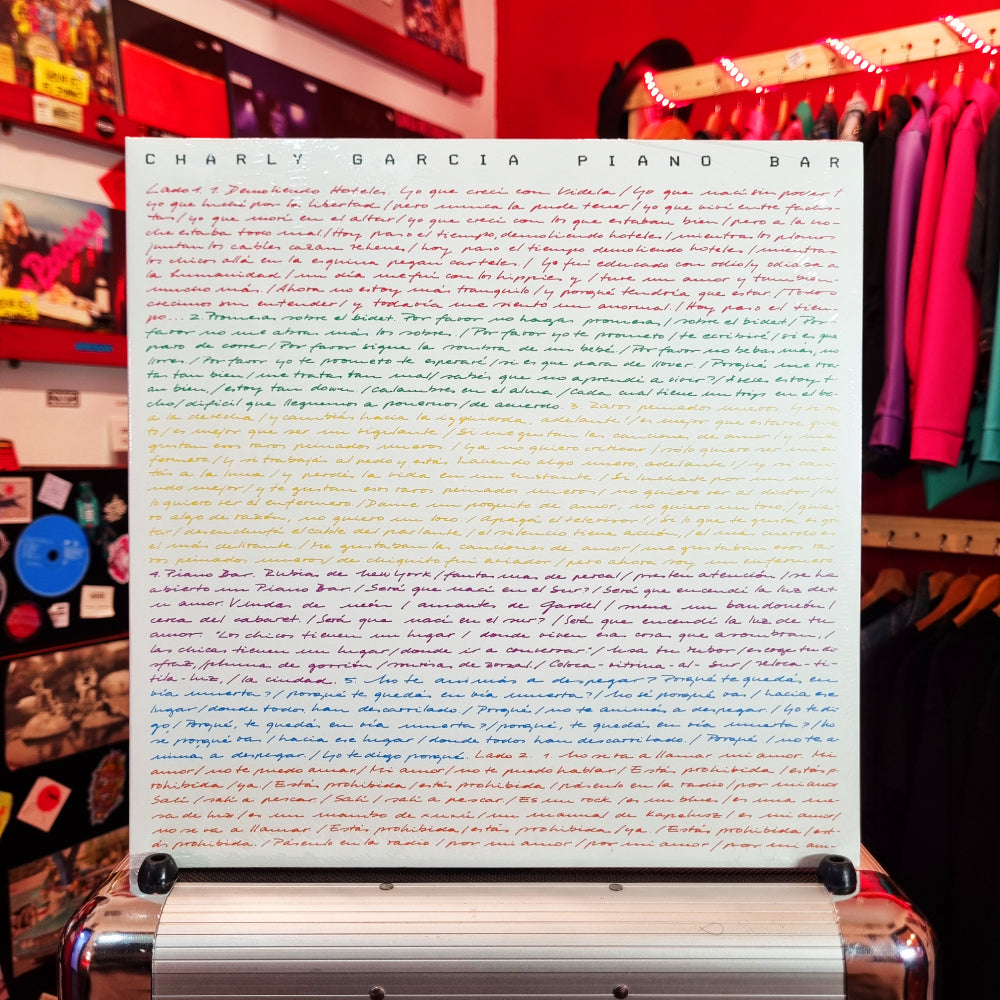 CHARLY GARCIA PIANO BAR
Lado 1. 1. Demoliendo Hoteles. Yo que crecí con Videla / Yo que nací sin poder /
yo que luché por la libertad / pero nunca la pude tener / yo que viví entre fachis-
tas / yo que morí en el altar / yo que crecí con los que estaban bien / pero a la no-
che estaba todo mal / Hoy paso el tiempo, demoliendo hoteles / mientras los plomos
juntan los cables cazan rehenes / hoy paso el tiempo demoliendo hoteles / mientras
los chicos allá en la esquina pegan carteles / Yo fui educado con odio y odiaba a
la humanidad / un día me fui con los hippies y / tuve un amor y también
mucho más. / Ahora no estoy más tranquilo / y porqué tendría que estar. / Todos
crecimos sin entender / y todavía me siento un anormal. / Hoy paso el tiem-
po... 2. Promesas sobre el bidet. Por favor no hagas promesas / sobre el bidet / Por
favor no me abras más los sobres / Por favor yo te prometo / te escribiré / si es que
paro de correr / Por favor sigue la sombra de mi bebé. / Por favor no bebas más, no
llores / Por favor yo te prometo te esperaré / si es que para de llover. / Porqué me tra-
tan tan bien / me tratan tan mal / sabés que no aprendí a vivir? / A veces estoy t-
an bien, / estoy tan down, / calambres en el alma / cada cual tiene un trip en el bo-
cho / difícil que lleguemos a ponernos / de acuerdo. 3. Raros peinados nuevos. Y si va
a la derecha / y cambiás hacia la izquierda, adelante! / es mejor que estarse quie-
to / es mejor que ser un vigilante / Si me gustan las canciones de amor / y me
gustan esos raros peinados nuevos / Ya no quiero criticar / sólo quiero ser un en-
fermero. / Y si trabajás al pedo y estás haciendo algo nuevo, adelante! / y si can-
tás a la luna / y perdés la vida en un instante. / Si luchaste por un mu-
ndo mejor / y te gustan esos raros peinados nuevos / no quiero ver al doctor / só-
lo quiero ver al enfermero. / Dame un poquito de amor, no quiero un toco, / quie-
ro algo de razón, no quiero un loco. / Apagá el televisor! / Si lo que te gusta es gri-
tar / desenchufa el cable del parlante / el silencio tiene acción, / el más cuerdo es
el más delirante. / Me gustaban las canciones de amor / me gustaban esos ra-
ros peinados nuevos / de chiquito fui aviador / pero ahora soy un enfermero
4. Piano Bar. Rubias de New York / fantasmas de percal / presten atención / se ha
abierto un Piano Bar. / Será que nací en el Sur? / Será que encendí la luz de t-
u amor. Viudas de neón / amantes de Gardel / suena un bandoneón /
cerca del cabaret. / Será que nací en el sur? / Será que encendí la luz de tu
amor. Los chicos tienen un lugar / donde viven esa cosa que asombran, /
las chicas tienen un lugar / donde ir a conversar. / Usa tu rubor / escoge tu di-
sfraz, / pluma de gorrión / sonrisas de zorzal. / Coloca-vitrina-al-Sur / reloca-ti-
tila-luz, / la ciudad. 5. No te animás a despegar? Porqué te quedás en
vía muerta? / porqué te quedás en vía muerta? / no sé porqué vas / hacia ese
lugar / donde todos han descarrilado. / Porqué / no te animás a despegar. / Yo te di-
go, / Porqué, te quedás en vía muerta? / porqué, te quedás en vía muerta? / No
se porqué vas / hacia ese lugar / donde todos han descarrilado. / Porqué / no te a-
nimás a despegar. / Yo te digo porqué. Lado 2. 1. No se va a llamar mi amor. Mi
amor / no te puedo amar / Mi amor / no te puedo hablar / Estás prohibida / estás p-
rohibida / ya. / Estás prohibida / estás prohibida / pásenlo en la radio / por mi amor
Salí / salí a pescar. / Salí / salí a pescar. / Es un rock / es un blues / es una me-
sa de luz / es un mambo de xuxú / un manual de Kapeluz / es mi amor /
no se va a llamar / Estás prohibida / estás prohibida / ya / Estás prohibida / est-
ás prohibida. / Pásenlo en la radio / por mi amor / por mi amor / por mi am-